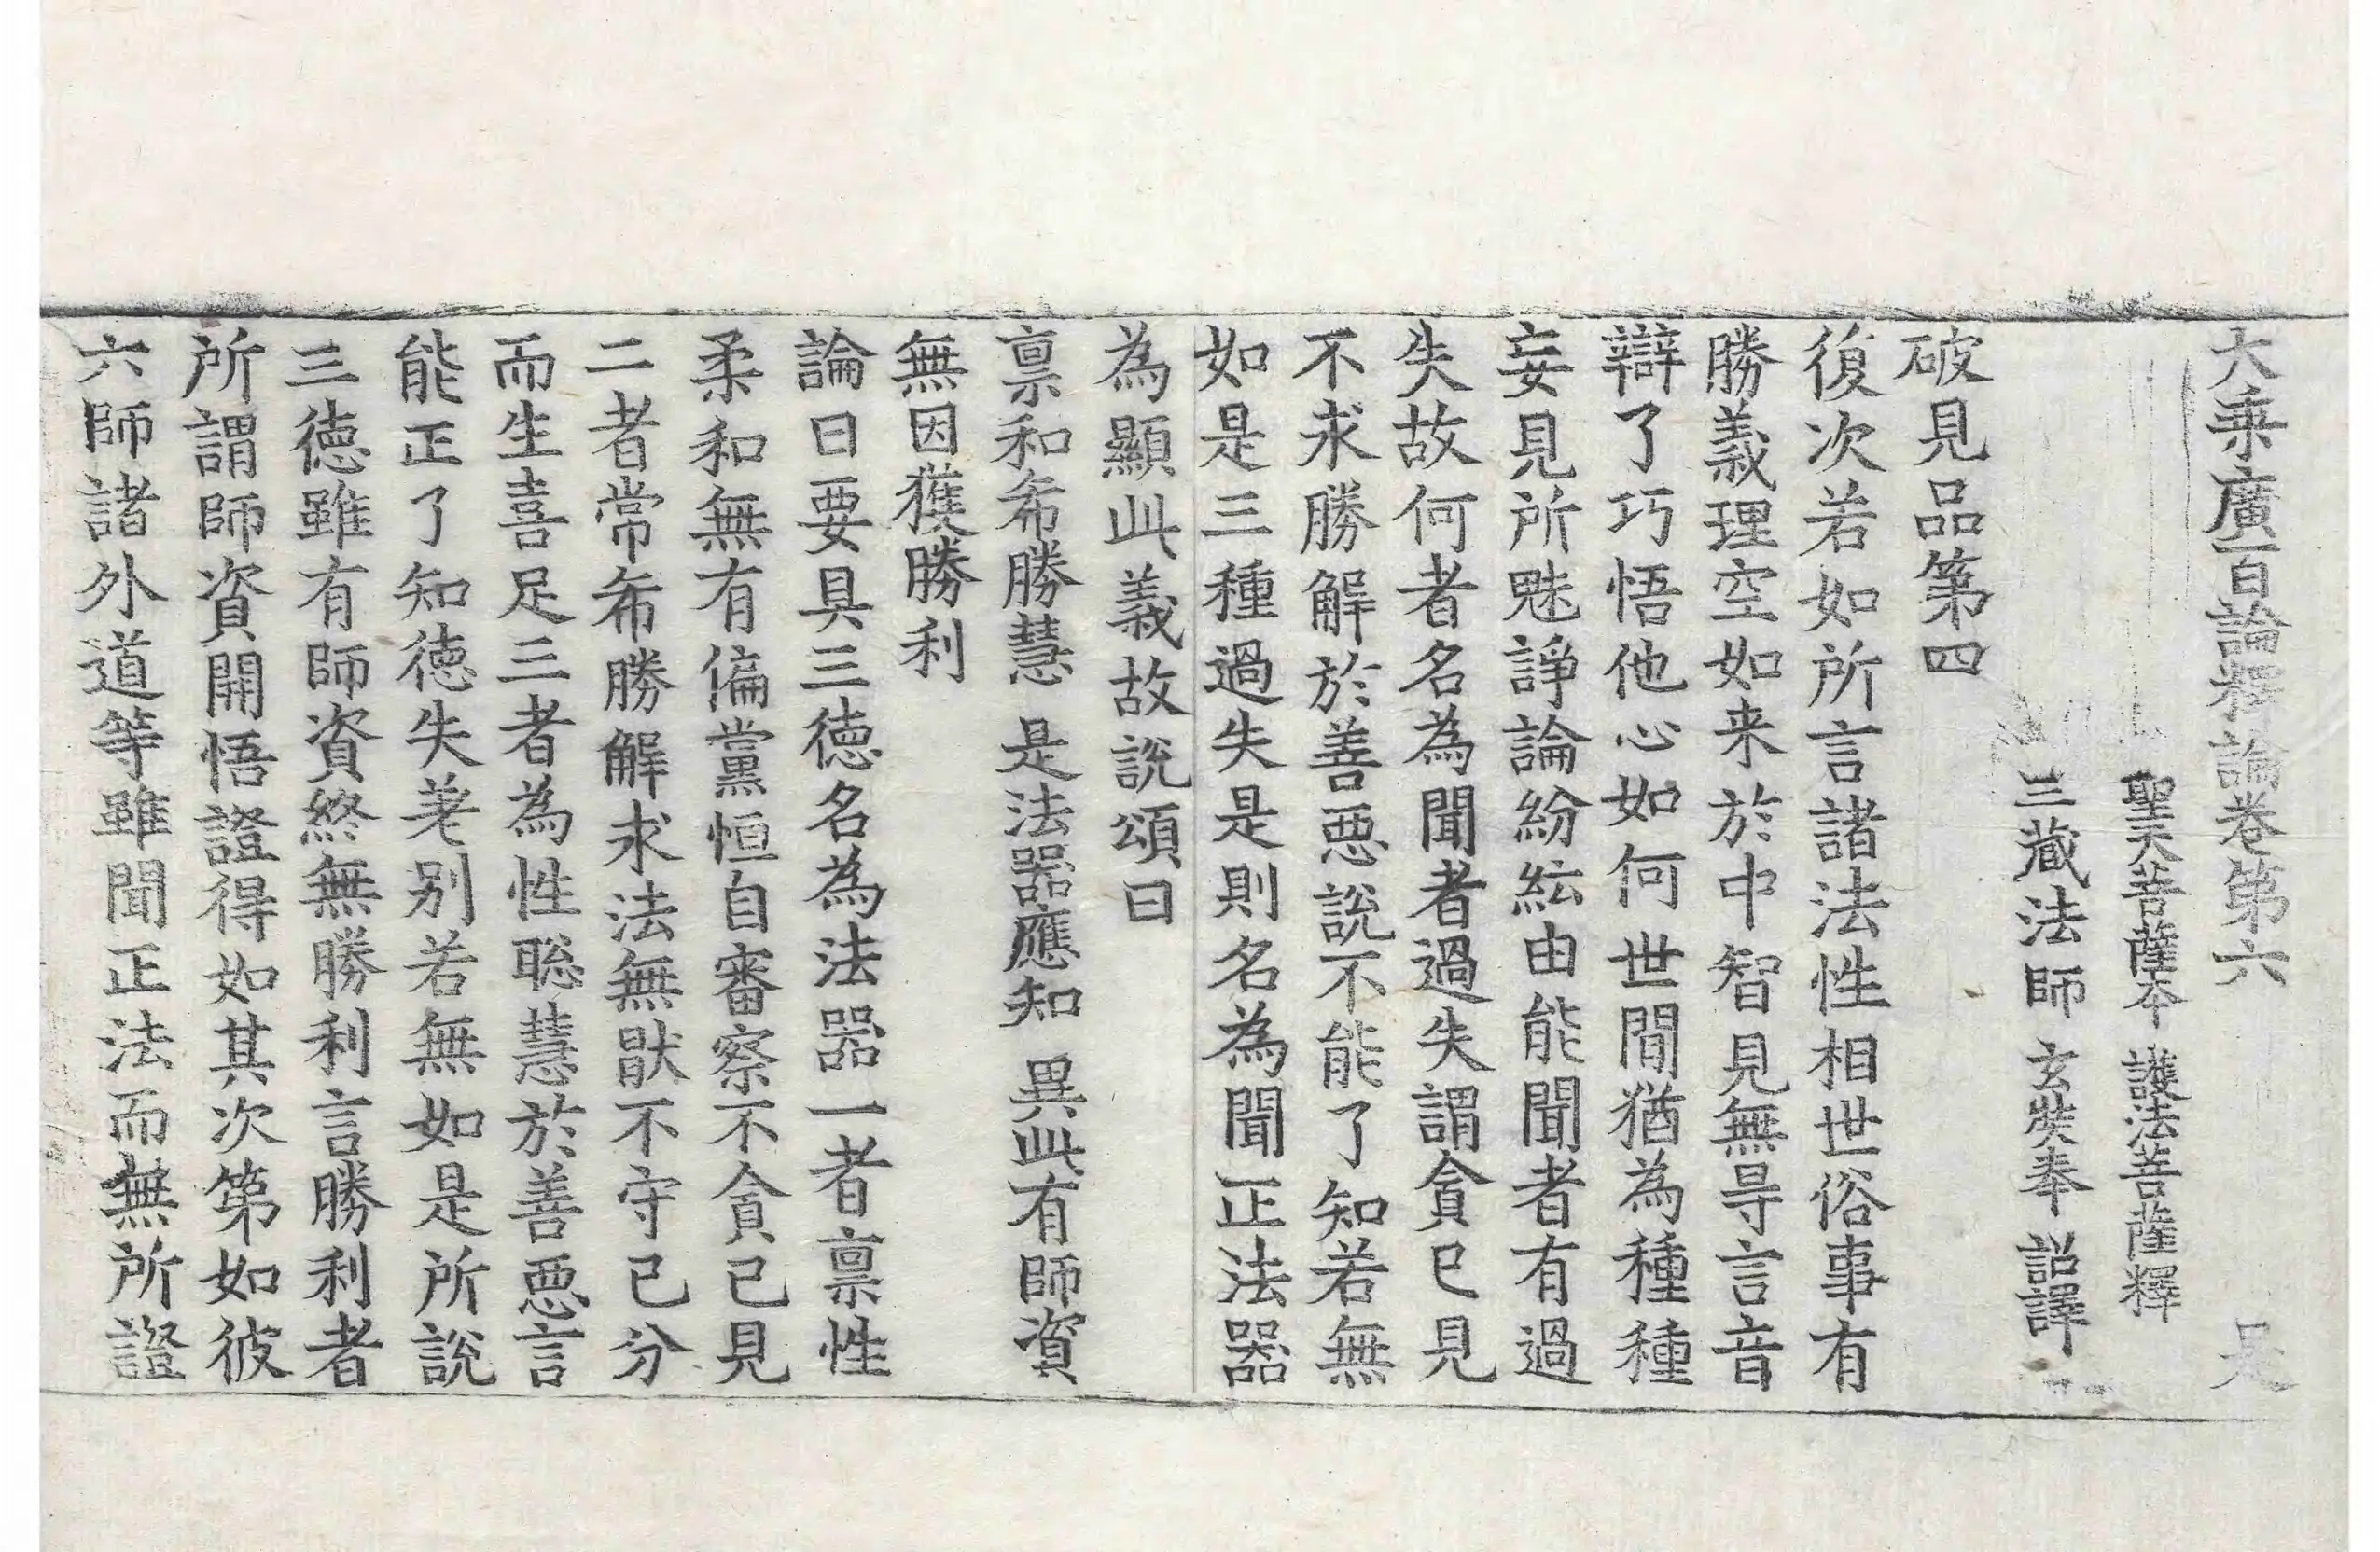 大乗廣百論釋論卷第六 是
聖天菩薩本 護法菩薩釋
三藏法師 玄奘奉 詔譯
破見品第四
復次若如所言諸法性相世俗事有
勝義理空如来於中智見無㝵言音
辯了巧悟他心如何世間猶為種種
妄見所魅諍論紛紜由能聞者有過
失故何者名為聞者過失謂貪己見
不求勝解於善惡說不能了知若無
如是三種過失是則名為聞正法器
為顯此義故說頌曰
禀和希勝慧 是法器應知 異此有師資
無因獲勝利
論曰要具三德名為法器一者禀性
柔和無有偏黨恒自審察不貪己見
二者常希勝解求法無猒不守己分
而生喜足三者為性聡慧於善惡言
能正了知德失差別若無如是所說
三德雖有師資終無勝利言勝利者
所謂師資開悟證得如其次第如彼
六師諸外道等雖聞正法而無所證